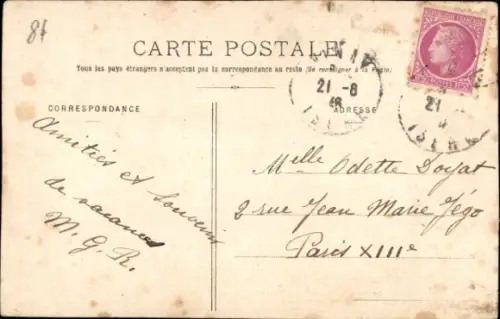 87
CARTE POSTALE
Tous les pays étrangers n'acceptent pas la correspondance au recto (Se renseigner à la Poste).
21-8
46
ISERE
21
ISERE
CORRESPONDANCE
ADRESSE
Amitiés et souvenir
de vacances
M. G. R.
Melle Odette Doyat
2 rue Jean Marie Jégo
Paris XIIIe